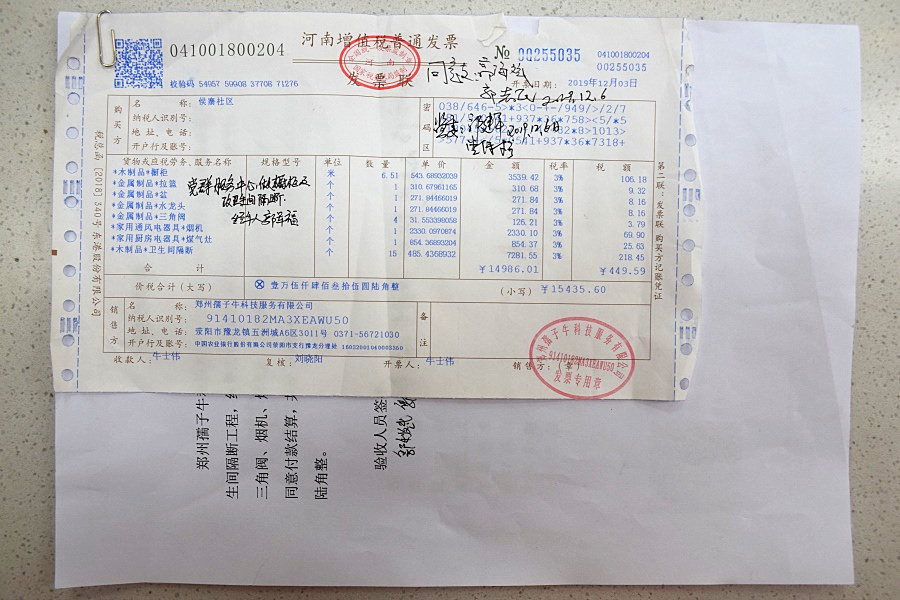 041001800204
河南增值税普通发票
发票联
№ 00255035
041001800204
00255035
校验码 54957 59908 37708 71276
开票日期: 2019年12月03日
同意
购买方
名称: 侯寨社区
纳税人识别号:
地址、电话:
开户行及账号:
密码区
038/646-5>*3<0-+-/949/>/2/7
2019.12.6
货物或应税劳务、服务名称 规格型号 单位 数量 单价 金额 税率 税额
*木制品*橱柜 米 6.51 543.68932039 3539.42 3% 106.18
*金属制品*拉篮 个 1 310.67961165 310.68 3% 9.32
*金属制品*盆 个 1 271.84466019 271.84 3% 8.16
*金属制品*水龙头 个 1 271.84466019 271.84 3% 8.16
*金属制品*三角阀 个 4 31.553398058 126.21 3% 3.79
*家用通风电器具*烟机 个 1 2330.0970874 2330.10 3% 69.90
*家用厨房电器具*煤气灶 个 1 854.36893204 854.37 3% 25.63
*木制品*卫生间隔断 个 15 485.4368932 7281.55 3% 218.45
党群服务中心做橱柜及
卫生间隔断.
合计 ¥14986.01 ¥449.59
价税合计(大写) ⊗壹万伍仟肆佰叁拾伍圆陆角整 (小写) ¥15435.60
销售方
名称: 郑州孺子牛科技服务有限公司
纳税人识别号: 91410182MA3XEAWU50
地址、电话: 荥阳市豫龙镇五洲城A6区3011号 0371-56721030
开户行及账号: 中国农业银行股份有限公司荥阳市支行豫龙分理处 16032001040003360
备注
收款人: 牛士伟 复核: 刘晓阳 开票人: 牛士伟 销售方: (章)
郑州孺子牛科技服务有限公司
91410182MA3XEAWU50
发票专用章
第二联: 发票联 购买方记账凭证
税总函[2018]340号东港股份有限公司
郑州孺子牛
生间隔断工程,
三角阀、烟机、
同意付款结算,
陆角整。
验收人员签